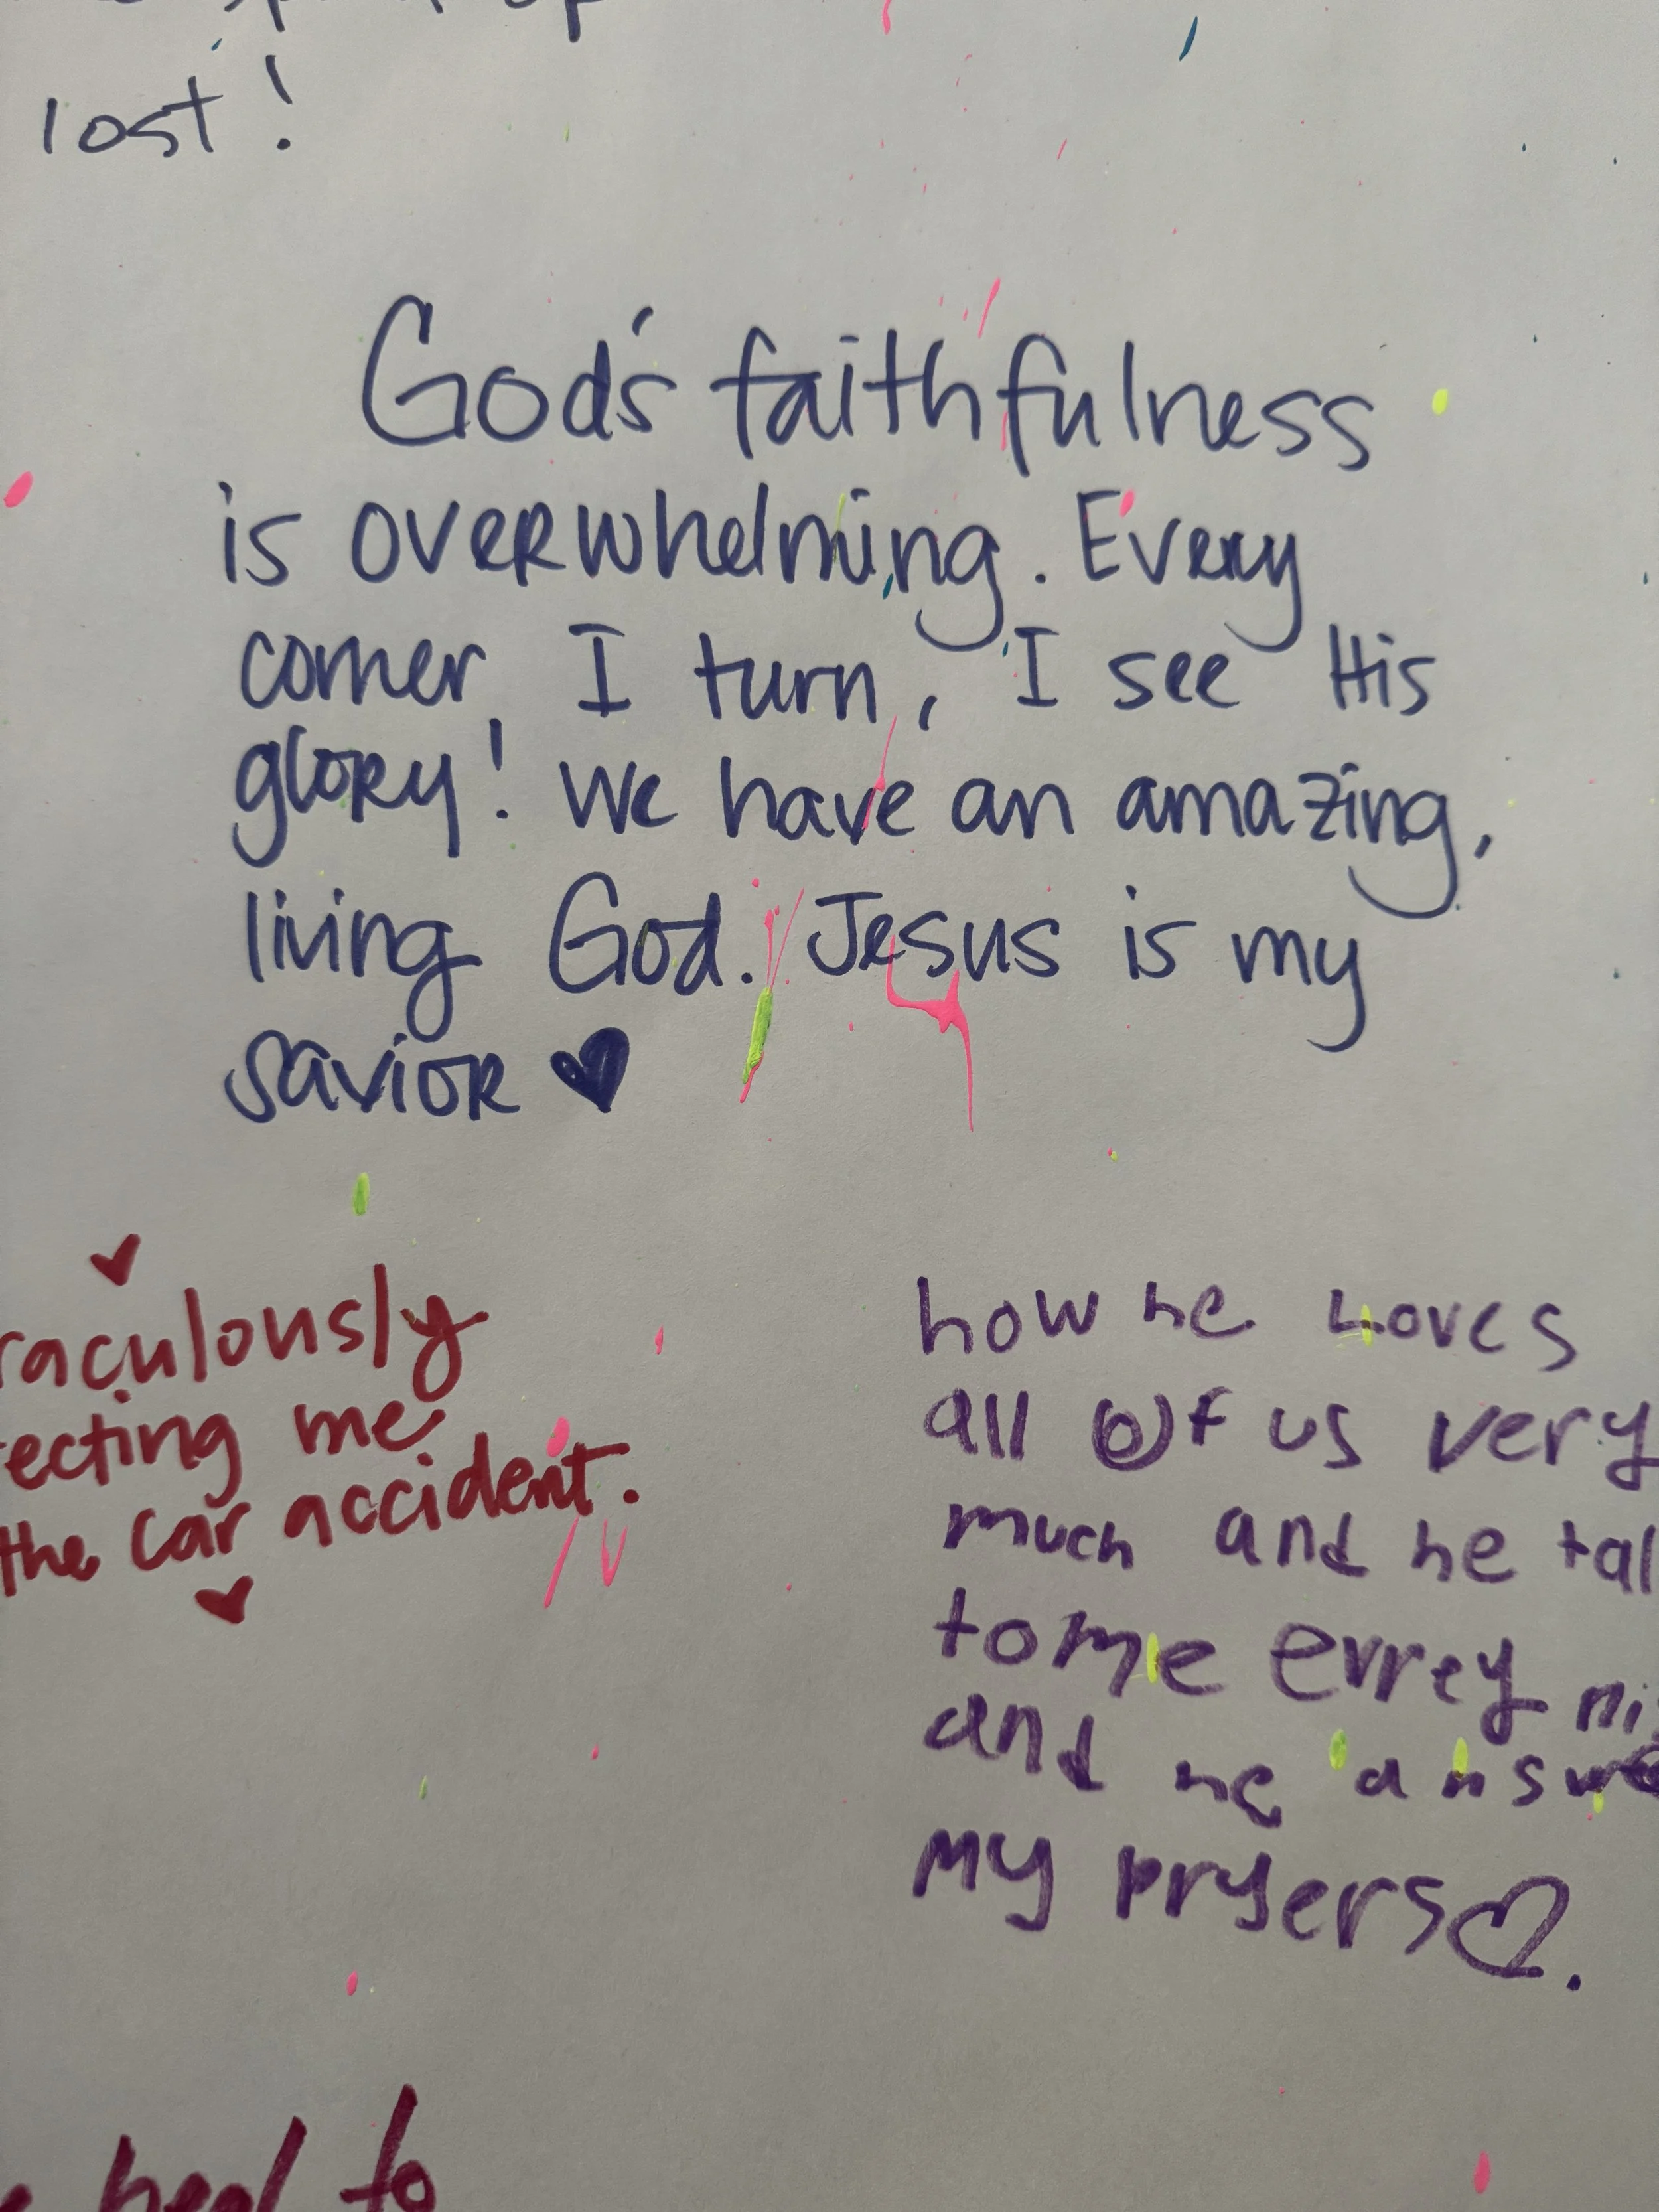 lost!
God's faithfulness
is overwhelming. Every
corner, I turn, I see His
glory! We have an amazing,
living God. Jesus is my
savior ♥
♥
raculously
ecting me
the car accident.
♥
how he Loves
all of us very
much and he tal
to me evrey ni
and he answe
my pryers♡.
heal to